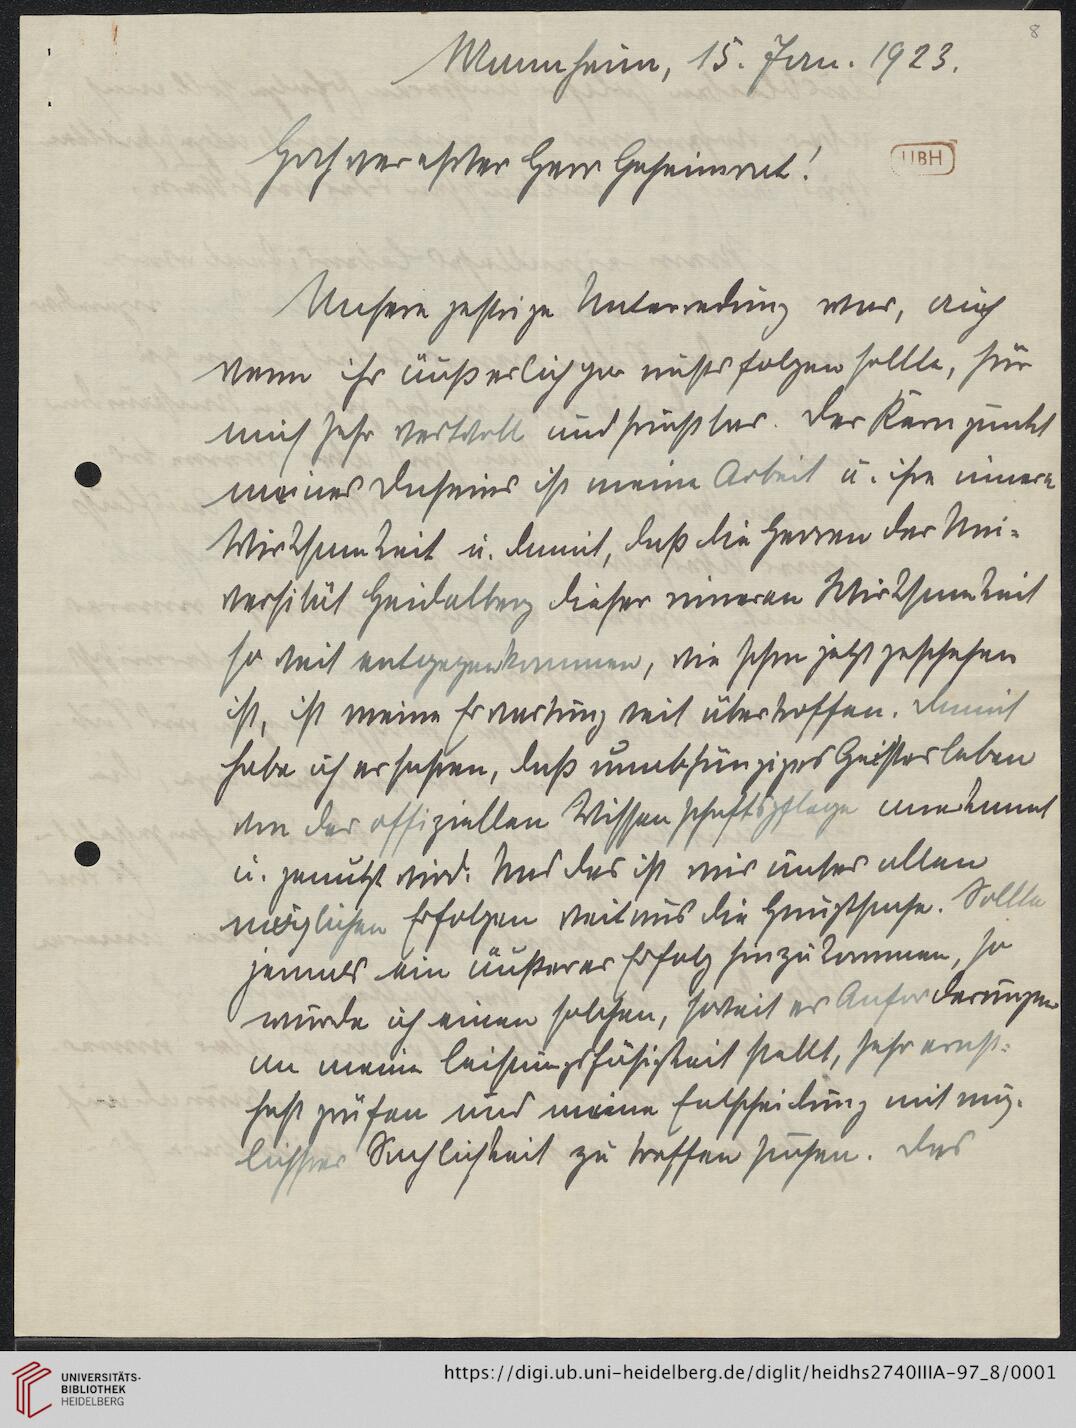 8
Mannheim, 15. Jan. 1923.
Hochverehrter Herr Geheimrat!
UBH
Unsere gestrige Unterredung war, auch
wenn ihr äußerlich gar nichts folgen sollte, für
mich sehr wertvoll und fruchtbar. Der Kernpunkt
meines Daseins ist meine Arbeit u. ihre innere
Wirksamkeit u. damit, daß die Herren der Uni-
versität Heidelberg dieser inneren Wirksamkeit
so weit entgegenkommen, wie schon jetzt geschehen
ist, ist meine Erwartung weit übertroffen. Damit
habe ich erfahren, daß unabhängiges Geistesleben
von der offiziellen Wissenschaftspflege anerkannt
u. genutzt wird. Und das ist mir unter allen
möglichen Erfolgen weitaus die Hauptsache. Sollte
jemals ein äußerer Erfolg hinzukommen, so
würde ich einen solchen, soweit er Anforderungen
an meine Leistungsfähigkeit stellt, sehr ernst-
haft prüfen und meine Entscheidung mit mög-
lichster Sachlichkeit zu treffen suchen. Das
UNIVERSITÄTS-
BIBLIOTHEK
HEIDELBERG
https://digi.ub.uni-heidelberg.de/diglit/heidhs2740IIIA-97_8/0001